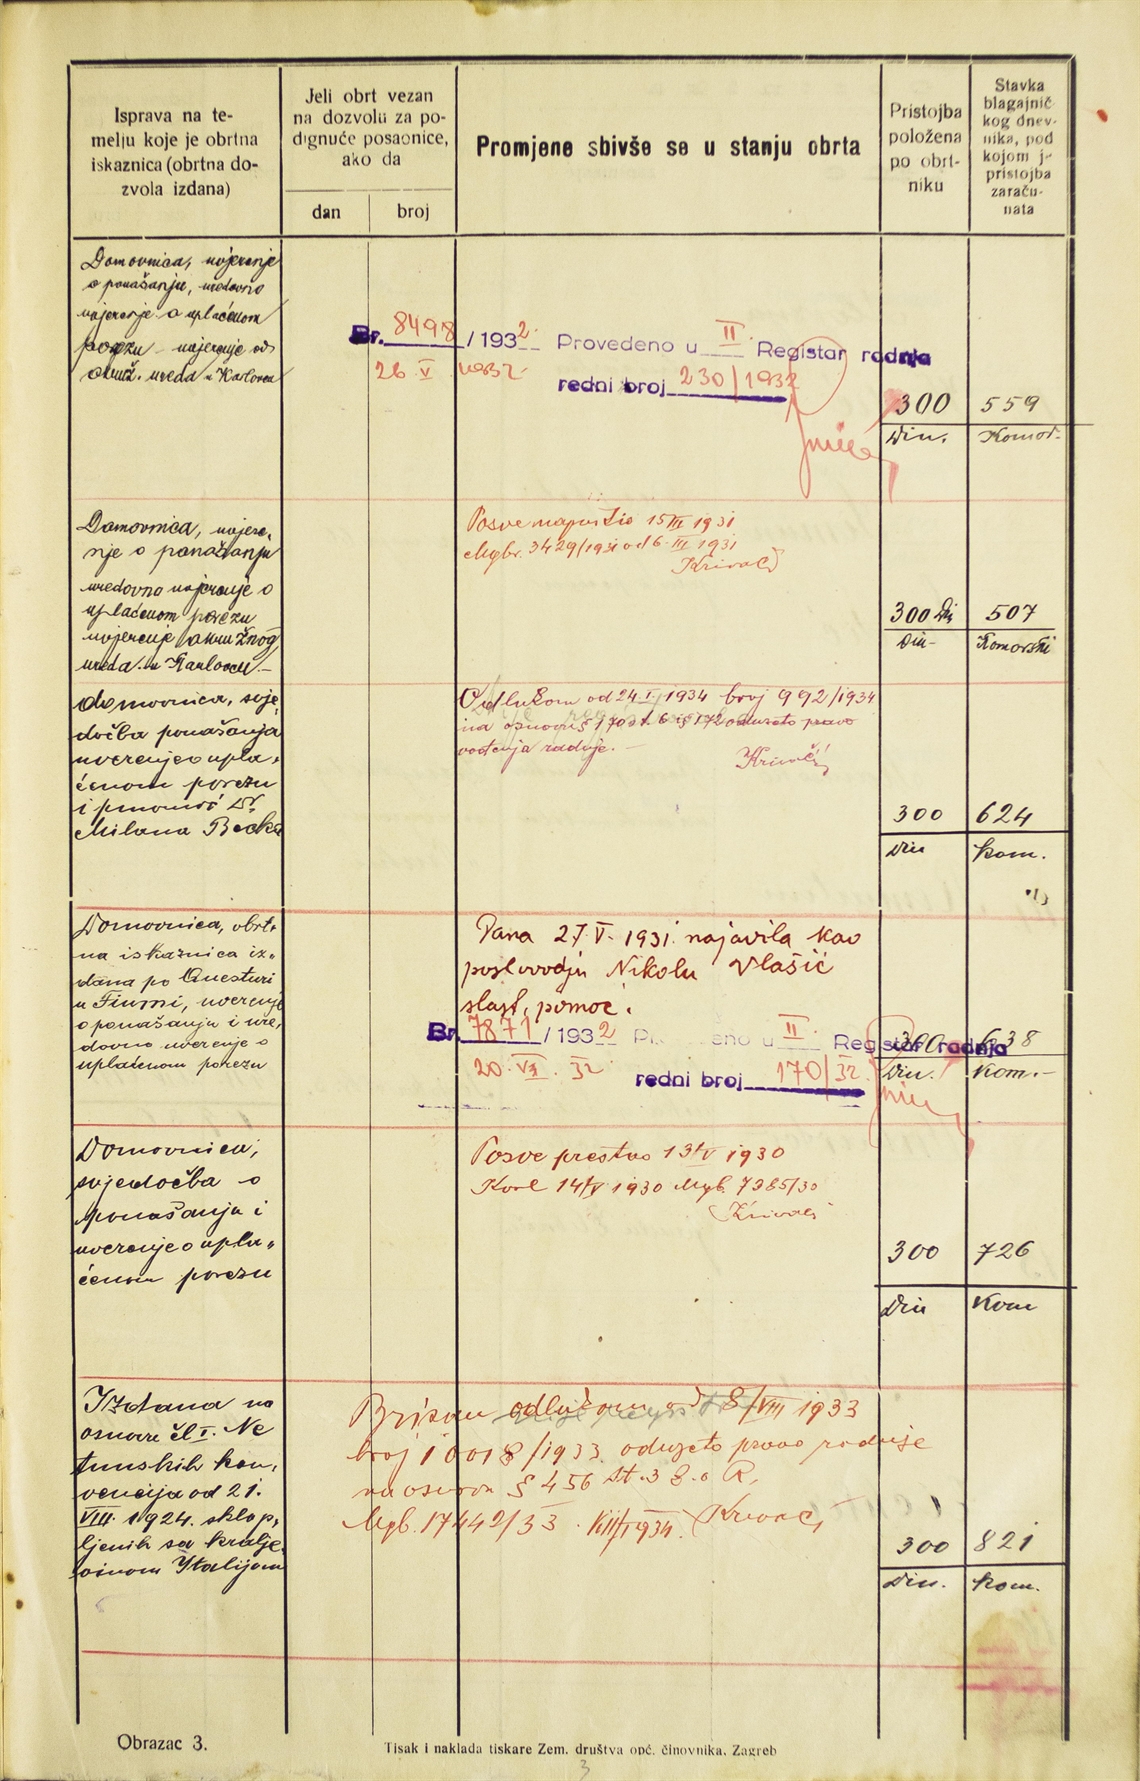 Isprava na te-
melju koje je obrtna
iskaznica (obrtna do-
zvola izdana)
Jeli obrt vezan
na dozvolu za po-
dignuće posaonice,
ako da
dan
broj
Promjene sbivše se u stanju obrta
Pristojba
položena
po obrt-
niku
Stavka
blagajnič
kog dnev-
nika, pod
kojom j-
pristojba
zaraču-
nata
Domovnica, uvjerenje
o ponašanju, uredovno
uvjerenje o uplaćenom
porezu - uvjerenje od
okruž. ureda u Karlovcu
Br. 8498 / 1932. Provedeno u II Registar radnja
26 V 1932. redni broj 230/1932
300 559
Din. Komor.
Domovnica, uvjere-
nje o ponašanju
uredovno uvjerenje o
uplaćenom porezu
uvjerenje okružnog
ureda u Karlovcu.-
Posve napustio 15 III 1931
Mgbr. 3429/1931 od 6. III 1931
Krivač
300 Din 507
Din- Komorski
Domovnica, svje-
dočba ponašanja
uverenje o upla-
ćenom porezu
i punomoć Dr.
Milana Becka
Odlukom od 24.I.1934 broj 992/1934
na osnovu § 170 st. 6 i § 172 oduzeto pravo
vođenja radnje. -
Krivač
300 624
Din kom.
Domovnica, obrt-
na iskaznica iz-
dana po Questuri
u Fiumi, uverenje
o ponašanju i ure-
dovno uverenje o
uplaćenom porezu
Dana 27. V. 1931. najavila kao
poslovodju Nikolu Vlašić
slast. pomoć.
Br. 7871 / 1932 eno u II. Registar radnja
20. VII. 32 redni broj 170/32
300 638
Din. Kom.-
Domovnica,
svjedočba o
ponašanju i
uverenje o upla-
ćenom porezu
Posve prestao 13/V 1930
Karl 14/V 1930 Mgb. 7385/30
Krivač
300 726
Din Kom
Izdana na
osnovu čl I. Ne
tunskih kon-
vencija od 21.
VIII. 1924. sklop-
ljenih sa kralje-
vinom Italijom
Brisan odlukom od 8/VIII 1933
broj 10018/1933. oduzeto pravo radnje
na osnovu § 456 st. 3 z. o R.
Mgb. 17442/33. VIII/1934. Krivač
300 821
Din. kom.
Obrazac 3.
Tisak i naklada tiskare Zem. društva opć. činovnika, Zagreb
3